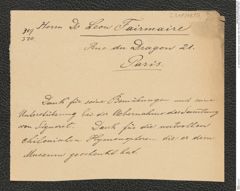 319
Herrn Dr Leon Fairmaire
370.
Rue du Dragon 21.
Paris.
Dank für seine Bemühungen und seine
Unterstützung bei der Uebernahme der Sammlung
von Signoret. Dank für die wertvollen
Chilenischen Hymenopteren die er dem
Museum geschenkt hat.